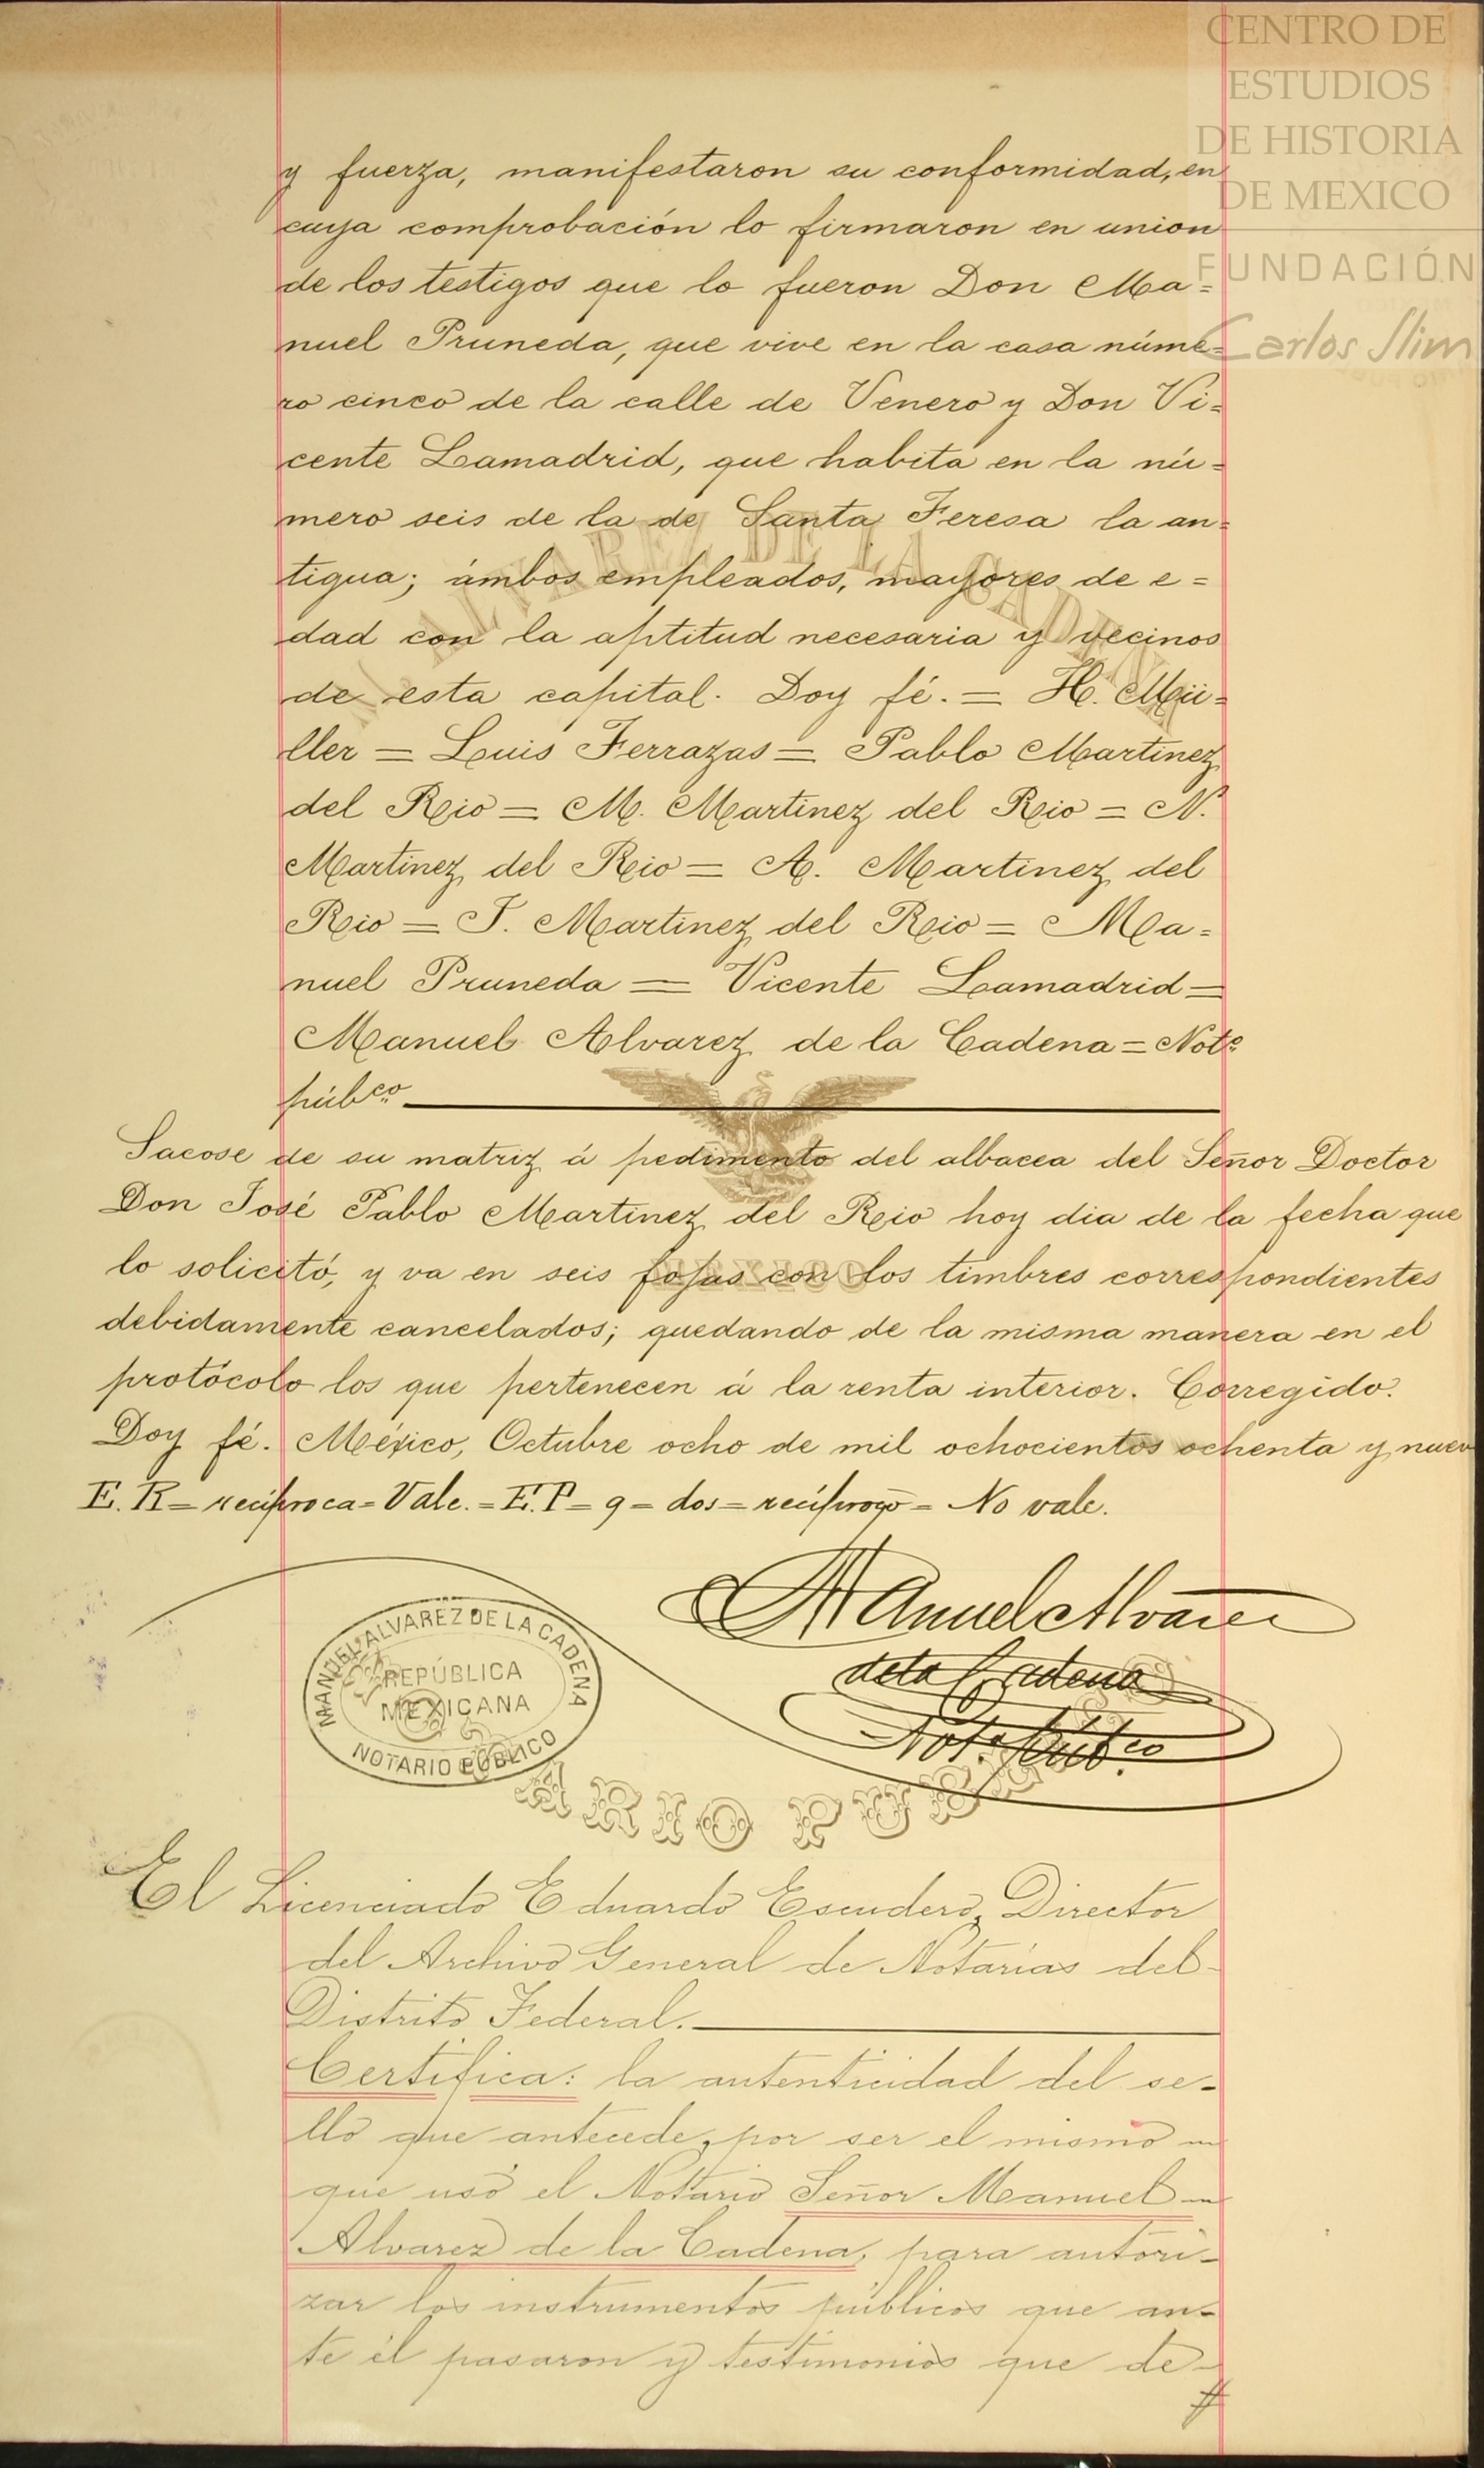 CENTRO DE
ESTUDIOS
DE HISTORIA
DE MEXICO
FUNDACIÓN
Carlos Slim
y fuerza, manifestaron su conformidad, en
cuya comprobación lo firmaron en union
de los testigos que lo fueron Don Ma=
nuel Pruneda, que vive en la casa núme=
ro cinco de la calle de Venero y Don Vi=
cente Lamadrid, que habita en la nú=
mero seis de la de Santa Teresa la an=
tigua; ámbos empleados, mayores de e=
dad con la aptitud necesaria y vecinos
de esta capital. Doy fé. = H. Mü=
ller = Luis Terrazas = Pablo Martinez
del Rio = M. Martinez del Rio = N.
Martinez del Rio = A. Martinez del
Rio = J. Martinez del Rio = Ma=
nuel Pruneda = Vicente Lamadrid =
Manuel Alvarez de la Cadena = Not.º
púb.co
Sacose de su matriz á pedimento del albacea del Señor Doctor
Don José Pablo Martinez del Rio hoy dia de la fecha que
lo solicitó, y va en seis fojas con los timbres correspondientes
debidamente cancelados; quedando de la misma manera en el
protócolo los que pertenecen á la renta interior. Corregido.
Doy fé. México, Octubre ocho de mil ochocientos ochenta y nuev
E. R = recíproca = Vale. = E. T = 9 = dos = recíproco = No vale.
Manuel Alvarez
de la Cadena
Not.º Púb.co
MANUEL ALVAREZ DE LA CADENA
REPÚBLICA
MEXICANA
NOTARIO PÚBLICO
ARIO PUB
El Licenciado Eduardo Escudero, Director
del Archivo General de Notarías del
Distrito Federal.
Certifica: la autenticidad del se-
llo que antecede, por ser el mismo
que usó el Notario Señor Manuel
Alvarez de la Cadena, para autori-
zar los instrumentos públicos que an-
te él pasaron y testimonios que de-
#